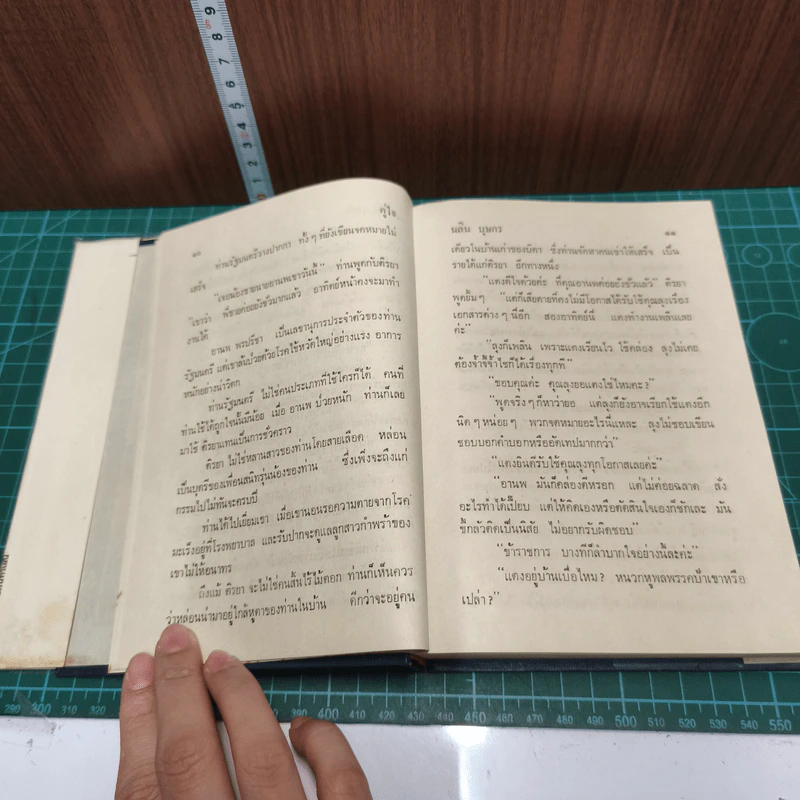 ๑๐
คู่ใจ
ท่านรัฐมนตรีวางปากกา ทั้ง ๆ ที่ยังเขียนจดหมายไม่
เสร็จ
“เจอน้องชายนายอานพเขาวันนี้” ท่านพูดกับติรยา
“เขาว่า พี่ชายค่อยยังชั่วมากแล้ว อาทิตย์หน้าคงจะมาทำ
งานได้
อานพ พรปรีชา เป็นเลขานุการประจำตัวของท่าน
รัฐมนตรี แต่เขาล้มป่วยด้วยโรคไข้หวัดใหญ่อย่างแรง อาการ
หนักอย่างน่าวิตก
ท่านรัฐมนตรี ไม่ใช่คนประเภทที่ใช้ใครก็ได้ คนที่
ท่านใช้ได้ถูกใจนั้นมีน้อย เมื่อ อานพ ป่วยหนัก ท่านก็เลย
มาใช้ ติรยาแทนเป็นการชั่วคราว
ติรยา ไม่ใช่หลานสาวของท่านโดยสายเลือด หล่อน
เป็นบุตรีของเพื่อนสนิทรุ่นน้องของท่าน ซึ่งเพิ่งจะถึงแก่
กรรมไปไม่ทันจะครบปี
ท่านได้ไปเยี่ยมเขา เมื่อเขานอนรอความตายจากโรค
มะเร็งอยู่ที่โรงพยาบาล และรับปากจะดูแลลูกสาวกำพร้าของ
เขาไม่ให้อนาทร
ถึงแม้ ติรยา จะไม่ใช่คนสิ้นไร้ไม้ตอก ท่านก็เห็นควร
ว่าหล่อนน่ามาอยู่ใกล้หูตาของท่านในบ้าน ดีกว่าจะอยู่คน
นลิน บุษกร
๑๑
เดียวในบ้านเก่าของบิดา ซึ่งท่านจัดหาคนเช่าให้เสร็จ เป็น
รายได้แก่ติรยา อีกทางหนึ่ง
“แดงดีใจด้วยค่ะ ที่คุณอานพค่อยยังชั่วแล้ว” ติรยา
พูดยิ้มๆ “แต่ก็เสียดายที่คงไม่มีโอกาสได้รับใช้คุณลุงเรื่อง
เอกสารต่าง ๆ นี้อีก สองอาทิตย์นี้ แดงทำงานเพลินเลย
ค่ะ”
“ลุงก็เพลิน เพราะแดงเรียนไว ใช้คล่อง ลุงไม่เคย
ต้องจ้ำจี้จ้ำไชก็ได้เรื่องทุกที”
“ขอบคุณค่ะ คุณลุงยอแดงใช่ไหมคะ?”
“พูดจริงๆ ก็หาว่ายอ แต่ลุงก็ยังอาจเรียกใช้แดงอีก
นิดๆ หน่อยๆ พวกจดหมายอะไรนี่แหละ ลุงไม่ชอบเขียน
ชอบบอกคำบอกหรืออัดเทปมากกว่า”
“แดงยินดีรับใช้คุณลุงทุกโอกาสเลยค่ะ”
“อานพ มันก็คล่องดีหรอก แต่ไม่ค่อยฉลาด สั่ง
อะไรทำได้เปี๊ยบ แต่ให้คิดเองหรือตัดสินใจเองก็ชักเละ มัน
ขี้กลัวคิดเป็นนิสัย ไม่อยากรับผิดชอบ”
“ข้าราชการ บางทีก็ลำบากใจอย่างนี้ละค่ะ”
“แดงอยู่บ้านเบื่อไหม? หนวกหูพลพรรคป้าเขาหรือ
เปล่า?”
1 2 3 4 5 6 7 8 9
290 300 310 320 400 450 500 510 520 530 540 550